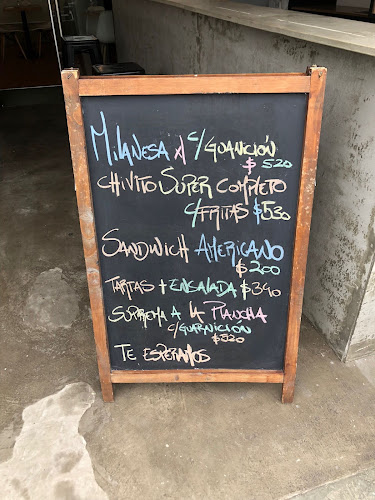 MILANESA XL C/GUANICIÓN
$520
CHIVITO SUPER COMPLETO
C/FRITAS $530
SANDWICH AMERICANO
$200
TARTAS + ENSALADA $390
SUPREMA A LA PLANCHA
C/GUARNICIÓN
$520
TE ESPERAMOS